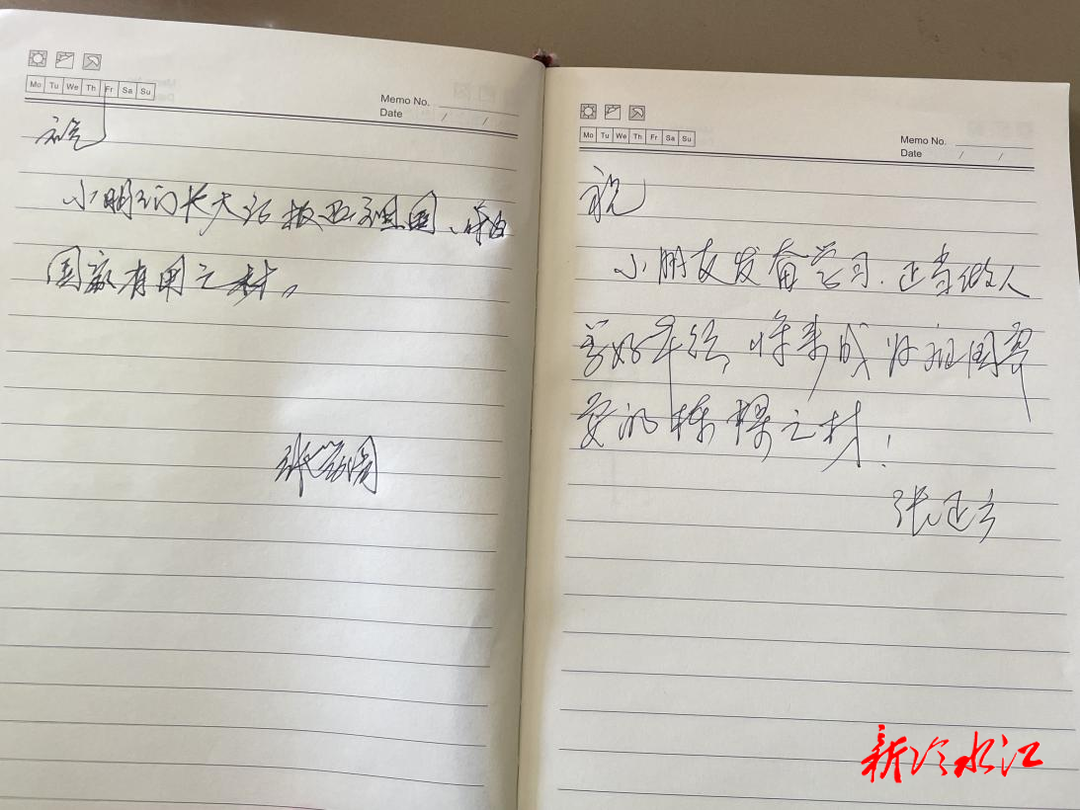 Mo Tu We Th Fr Sa Su
Memo No.
Date / /
祝
小朋们长大后报效祖国、
国家有用之材。
张
Mo Tu We Th Fr Sa Su
Memo No.
Date / /
祝
小朋友发奋学习.正当做人
将来成为祖国需
要的栋梁之材！
张正
新冷水江